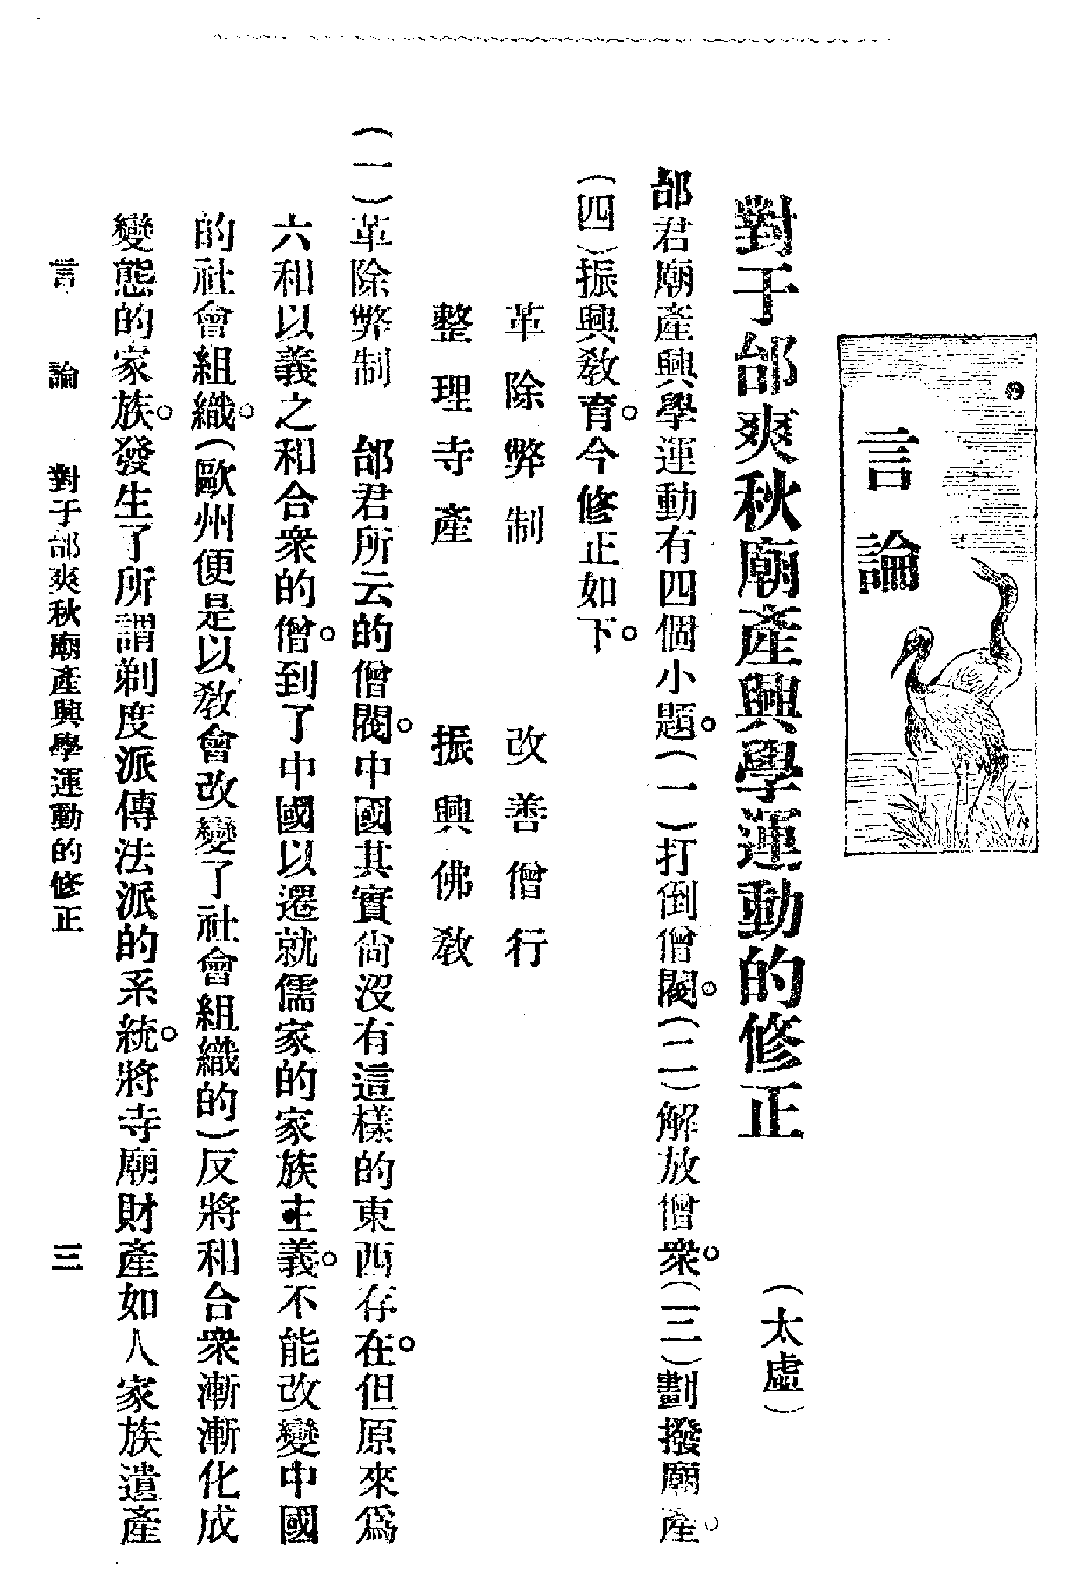 言論
對于邰爽秋廟產興學運動的修正
(太虛)
邰君廟產興學運動有四個小題。(一)打倒僧閥。(二)解放僧衆。(三)劃撥廟產。
(四)振興教育。今修正如下。
革除弊制　改善僧行
整理寺產　振興佛教
(一)革除弊制　邰君所云的僧閥。中國其實尙沒有這樣的東西存在。但原來爲
六和以義之和合衆的僧。到了中國以遷就儒家的家族主義。不能改變中國
的社會組織。(歐州便是以教會改變了社會組織的)反將和合衆漸漸化成
變態的家族。發生了所謂剃度派傳法派的系統。將寺廟財產如人家族遺產
言　論　對于邰爽秋廟產興學運動的修正　三